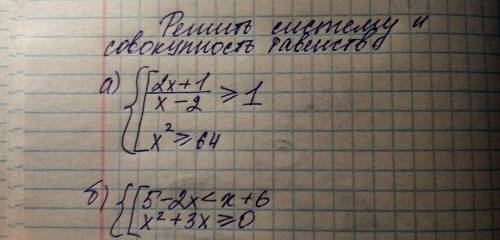 Решить систему и
совокупность равенств
а) {[ (2x+1)/(x-2) ≥ 1
x² ≥ 64
б) {[ 5-2x < x+6
x²+3x ≥ 0